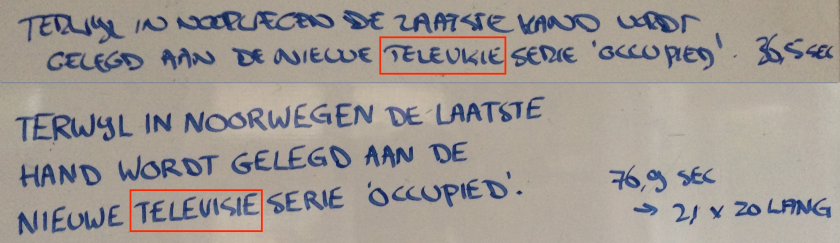 TERWIJL IN NOORWEGEN DE LAATSTE HAND WORDT
GELEGD AAN DE NIEUWE TELEVISIE SERIE 'OCCUPIED'. 36,5 SEC
TERWIJL IN NOORWEGEN DE LAATSTE
HAND WORDT GELEGD AAN DE
NIEUWE TELEVISIE SERIE 'OCCUPIED'.
76,9 SEC
→ 2,1 x ZO LANG